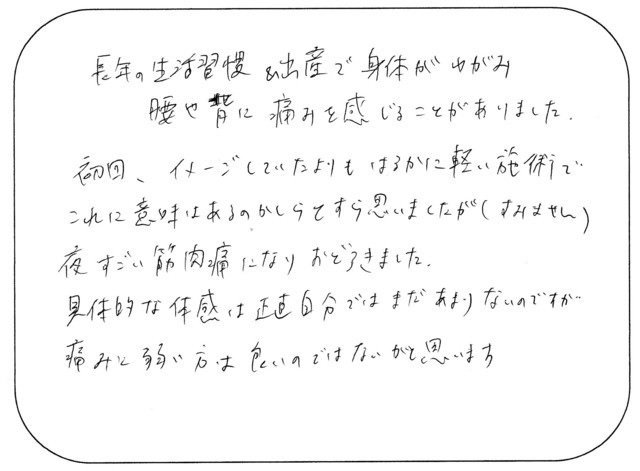 長年の生活習慣&出産で身体がゆがみ
腰や背に痛みを感じることがありました.
初回、イメージしていたよりもはるかに軽い施術で
これに意味はあるのかしらとすら思いましたが(すみません)
夜すごい筋肉痛になりおどろきました.
具体的な体感は正直自分ではまだあまりないのですが
痛みに弱い方は良いのではないかと思います